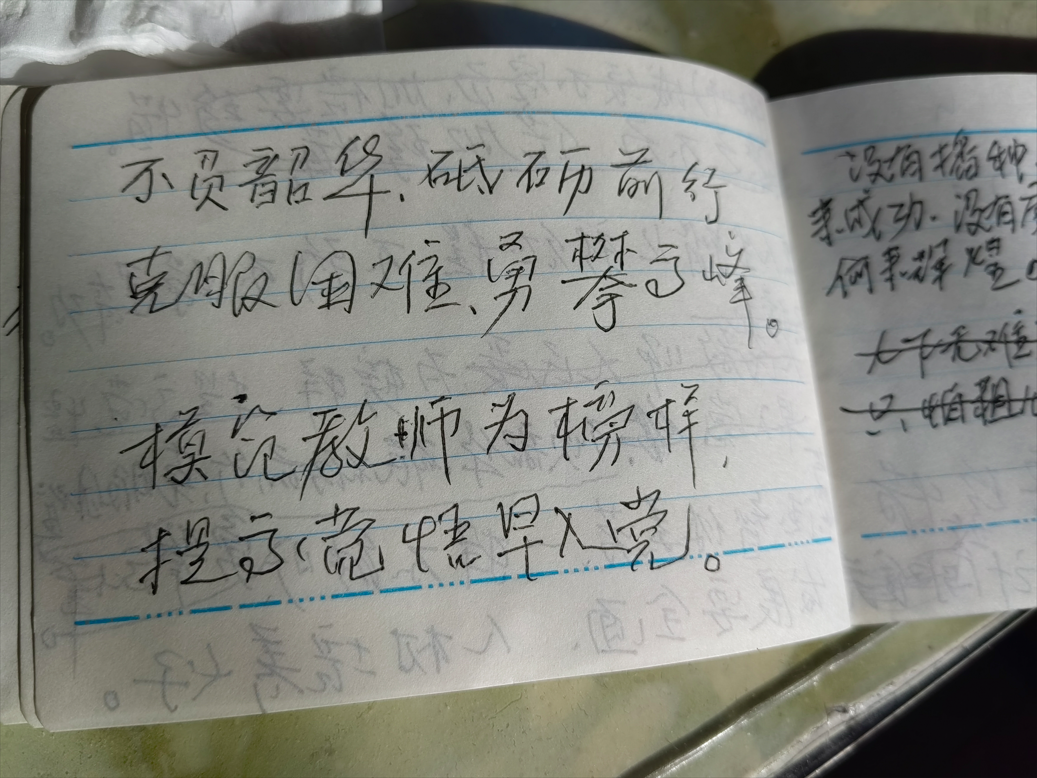 不负韶华、砥砺前行
克服困难、勇攀高峰。
模范教师为榜样，
提高觉悟早入党。
没有播种，
来成功．没有
何来辉煌。
天下无难
只怕粗心